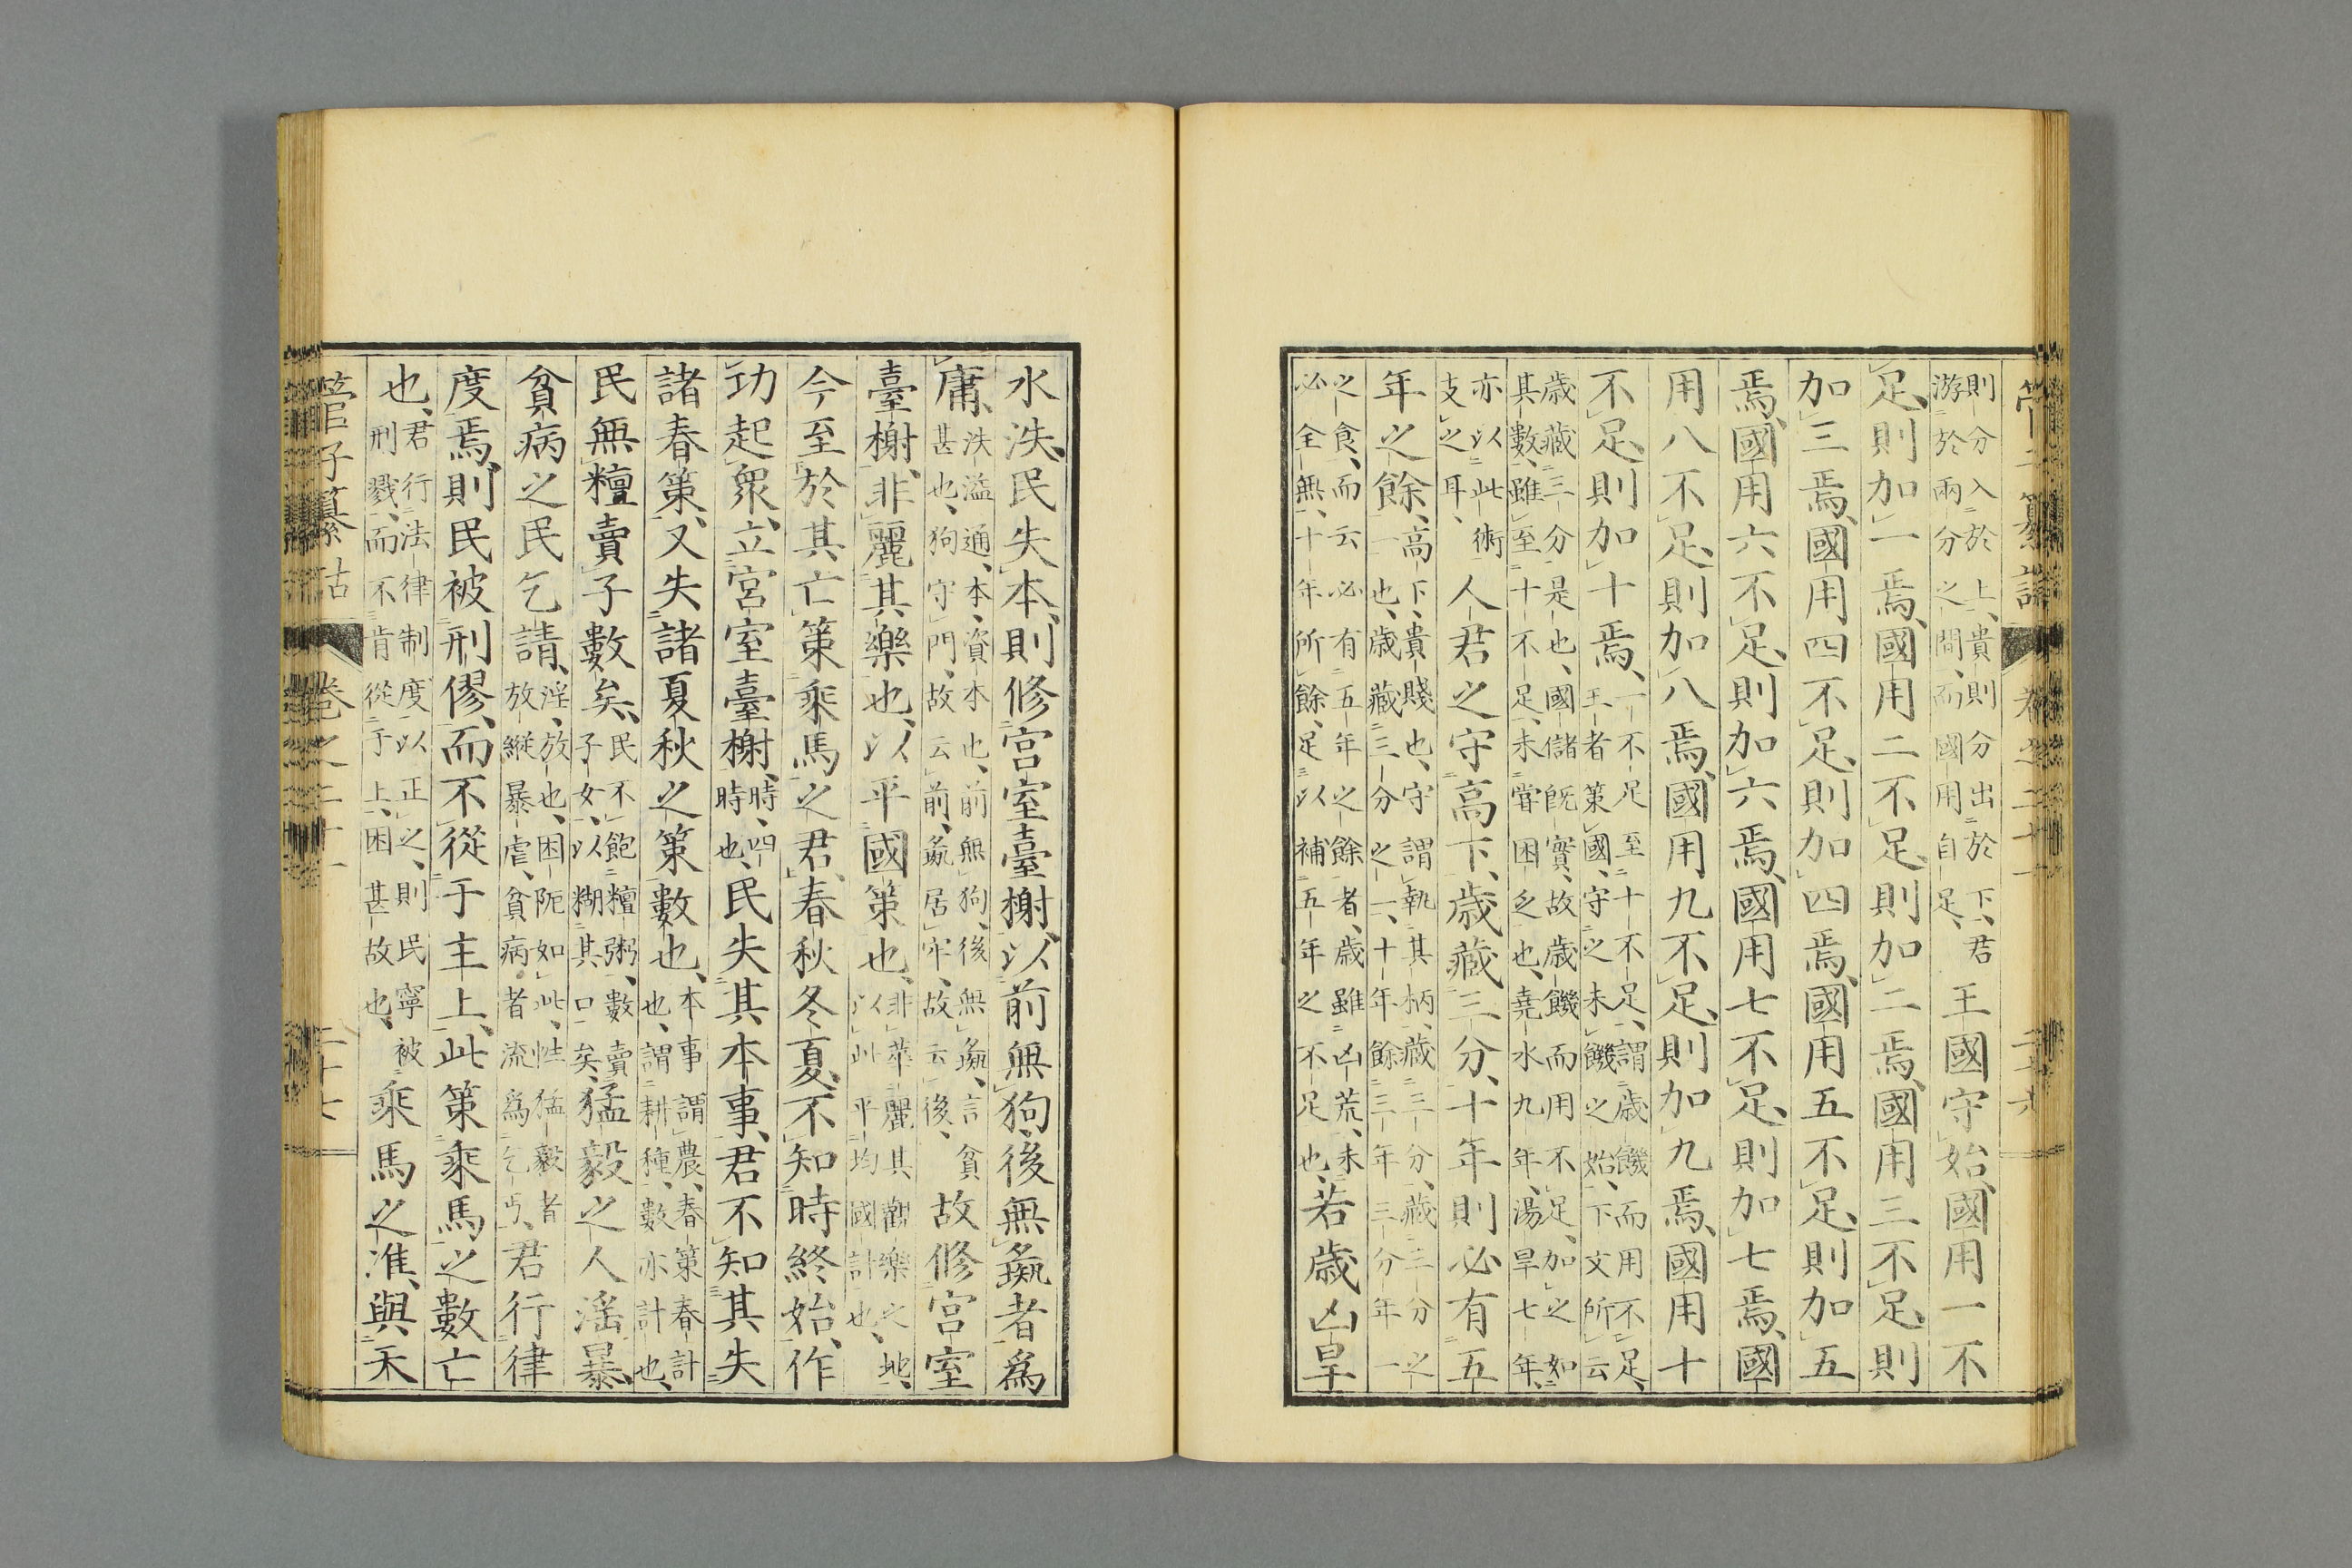 管子纂詁 卷之二十一 二十六
則分入於上、貴則分出於下、君游於兩分之間、而國用自足、王國守始、國用一不
足、則加一焉、國用二不足、則加二焉、國用三不足、則
加三焉、國用四不足、則加四焉、國用五不足、則加五
焉、國用六不足、則加六焉、國用七不足、則加七焉、國
用八不足、則加八焉、國用九不足、則加九焉、國用十
不足、則加十焉、一不足至十不足、謂歲饑而用不足、王者策國、守之未饑之始、下文所云
歲藏三分是也、國儲既實、故歲饑而用不足、加之如其數、雖至十不足、未嘗困乏也、堯水九年、湯旱七年、
亦以此術支之耳、人君之守高下、歲藏三分、十年則必有五
年之餘、高下、貴賤也、守謂執其柄、藏三分、藏三分之一也、歲藏三分之一、十年餘三年三分年一
之食、而云必有五年之餘者、歲雖凶荒、未必全無、十年所餘、足以補五年之不足也、若歲凶旱
水泆、民失本、則修宮室臺榭、以前無狗、後無彘者爲
庸、泆溢通、本、資本也、前無狗、後無彘、言貧甚也、狗守門、故云前、彘居牢、故云後、故修宮室
臺榭、非麗其樂也、以平國策也、非華麗其觀樂之地、以此平均國計也、
今至於其亡策乘馬之君、春秋冬夏、不知時終始、作
功起衆、立宮室臺榭、時、四時也、民失其本事、君不知其失
諸春策、又失諸夏秋之策數也、本事謂農、春策春計也、謂耕種、數亦計也、
民無糧賣子數矣、民不飽糧粥、數賣子女、以糊其口矣、猛毅之人淫暴、
貧病之民乞請、淫、放也、困阨如此、性猛毅者放縱暴虐、貧病者流爲乞丐、君行律
度焉、則民被刑僇、而不從于主上、此策乘馬之數亡
也、君行法律制度以正之、則民寧被刑戮、而不肯從于上、困甚故也、乘馬之准、與天
管子纂詁 卷之二十一 二十七